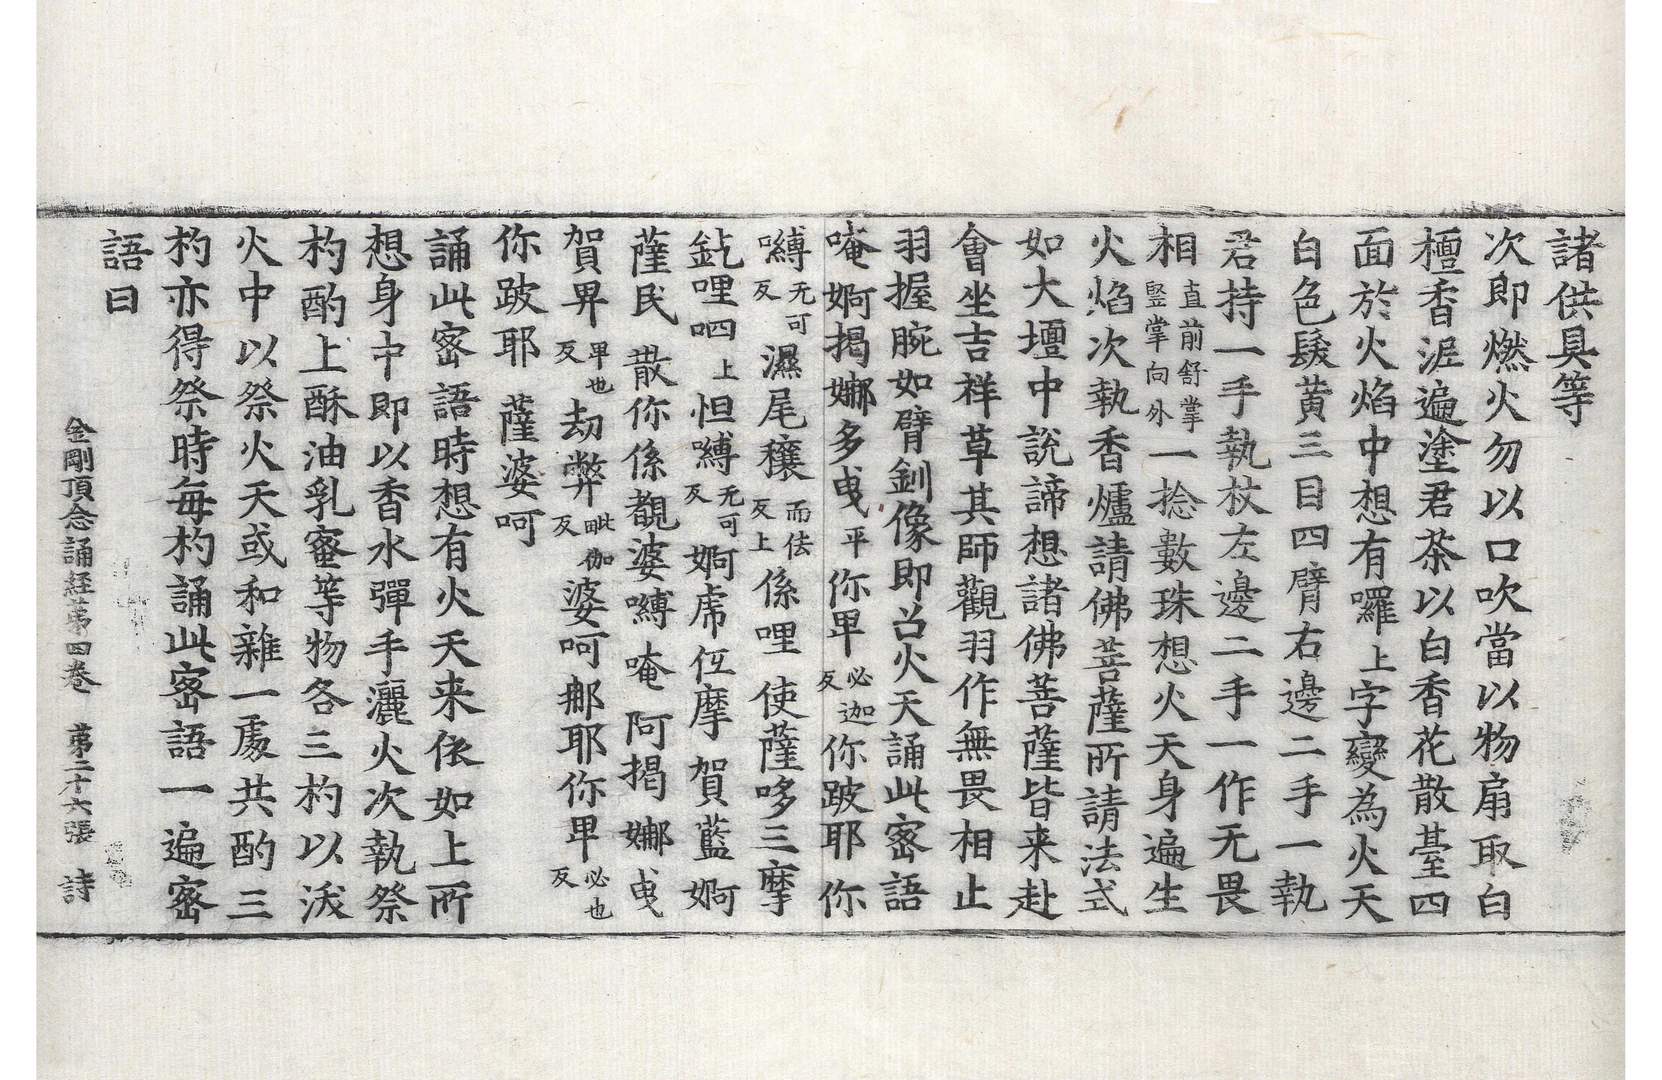 諸供具等
次即燃火勿以口吹當以物扇取白
檀香泥遍塗君荼以白香花散臺四
面於火焰中想有囉上字變為火天
白色髮黃三目四臂右邊二手一執
君持一手執杖左邊二手一作无畏
相直前舒掌竪掌向外一捻數珠想火天身遍生
火焰次執香爐請佛菩薩所請法式
如大壇中說諦想諸佛菩薩皆来赴
會坐吉祥草其師觀羽作無畏相止
羽握腕如臂釧像即召火天誦此密語
唵婀揭娜多曳平你卑必迦反你跛耶你
嚩无可反濕尾穰而佉反上係哩 使薩哆三摩
釳哩呬上怛嚩无可反婀虎伍摩賀藍婀
薩民 散你係覩婆嚩唵 阿揭娜曳
賀畀卑也反劫弊毗伽反婆呵郝耶你卑必也反
你跛耶 薩婆呵
誦此密語時想有火天来依如上所
想身中即以香水彈手灑火次執祭
杓酌上酥油乳蜜等物各三杓以泼
火中以祭火天或和雜一處共酌三
杓亦得祭時每杓誦此密語一遍密
語曰
金剛頂念誦経苐四卷 苐二十六張 詩